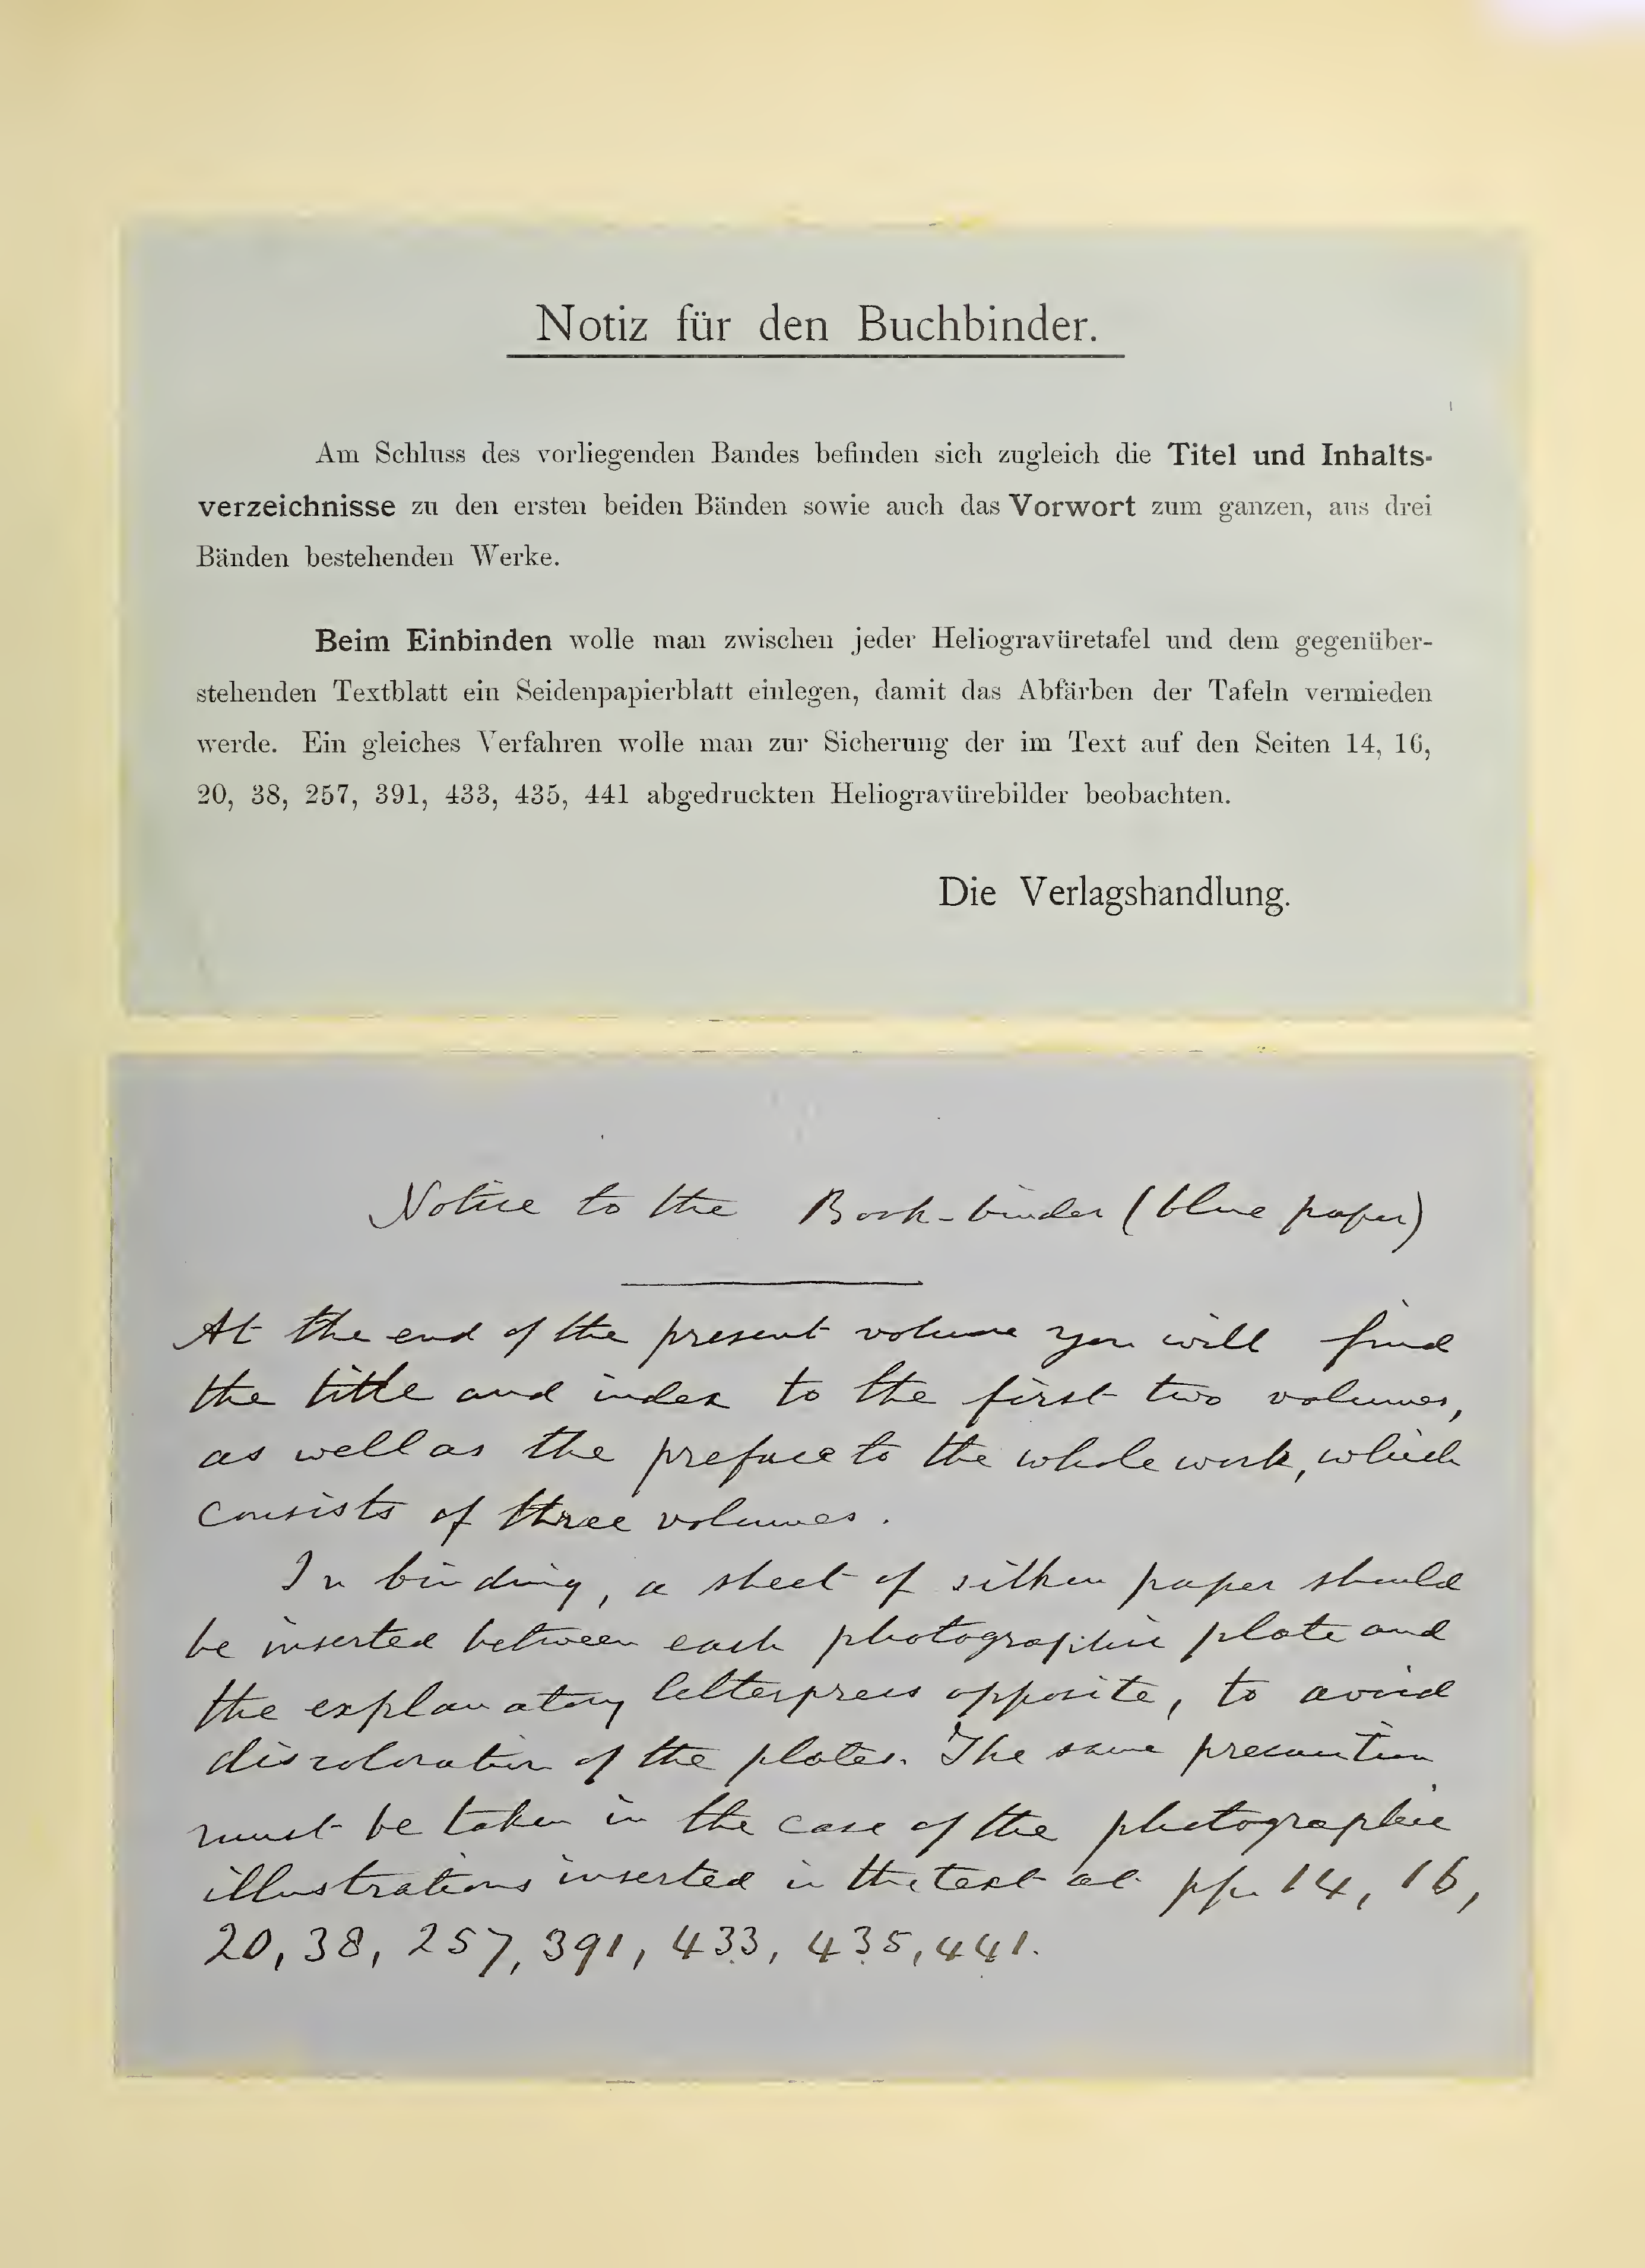 Notiz für den Buchbinder.
Am Schluss des vorliegenden Bandes befinden sich zugleich die Titel und Inhalts-
verzeichnisse zu den ersten beiden Bänden sowie auch das Vorwort zum ganzen, aus drei
Bänden bestehenden Werke.
Beim Einbinden wolle man zwischen jeder Heliogravüretafel und dem gegenüber-
stehenden Textblatt ein Seidenpapierblatt einlegen, damit das Abfärben der Tafeln vermieden
werde. Ein gleiches Verfahren wolle man zur Sicherung der im Text auf den Seiten 14, 16,
20, 38, 257, 391, 433, 435, 441 abgedruckten Heliogravürebilder beobachten.
Die Verlagshandlung.
Notice to the Book-binder (blue paper)
At the end of the present volume you will find
the title and index to the first two volumes,
as well as the preface to the whole work, which
consists of three volumes.
In binding, a sheet of silken paper should
be inserted between each photographic plate and
the explanatory letterpress opposite, to avoid
discoloration of the plates. The same precaution
must be taken in the case of the photographic
illustrations inserted in the text at pp. 14, 16,
20, 38, 257, 391, 433, 435, 441.